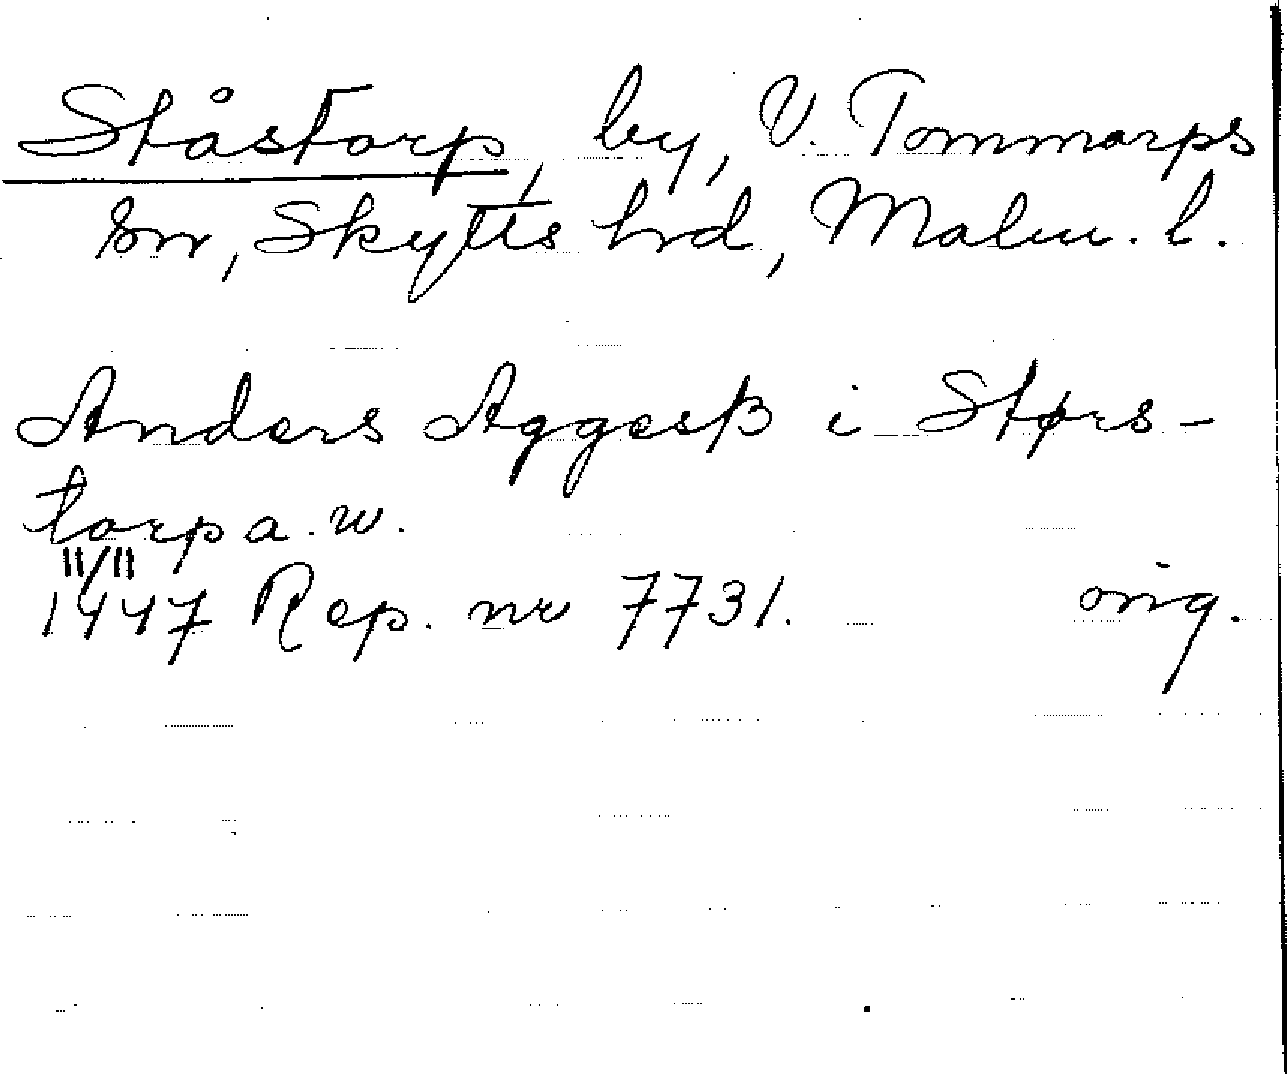 Ståstorp, by, V. Tommarps
sn, Skytts hrd, Malm. l.
Anders Aggesß i Størs-
torp a. w.
11/11
1447 Rep. nr 7731. orig.